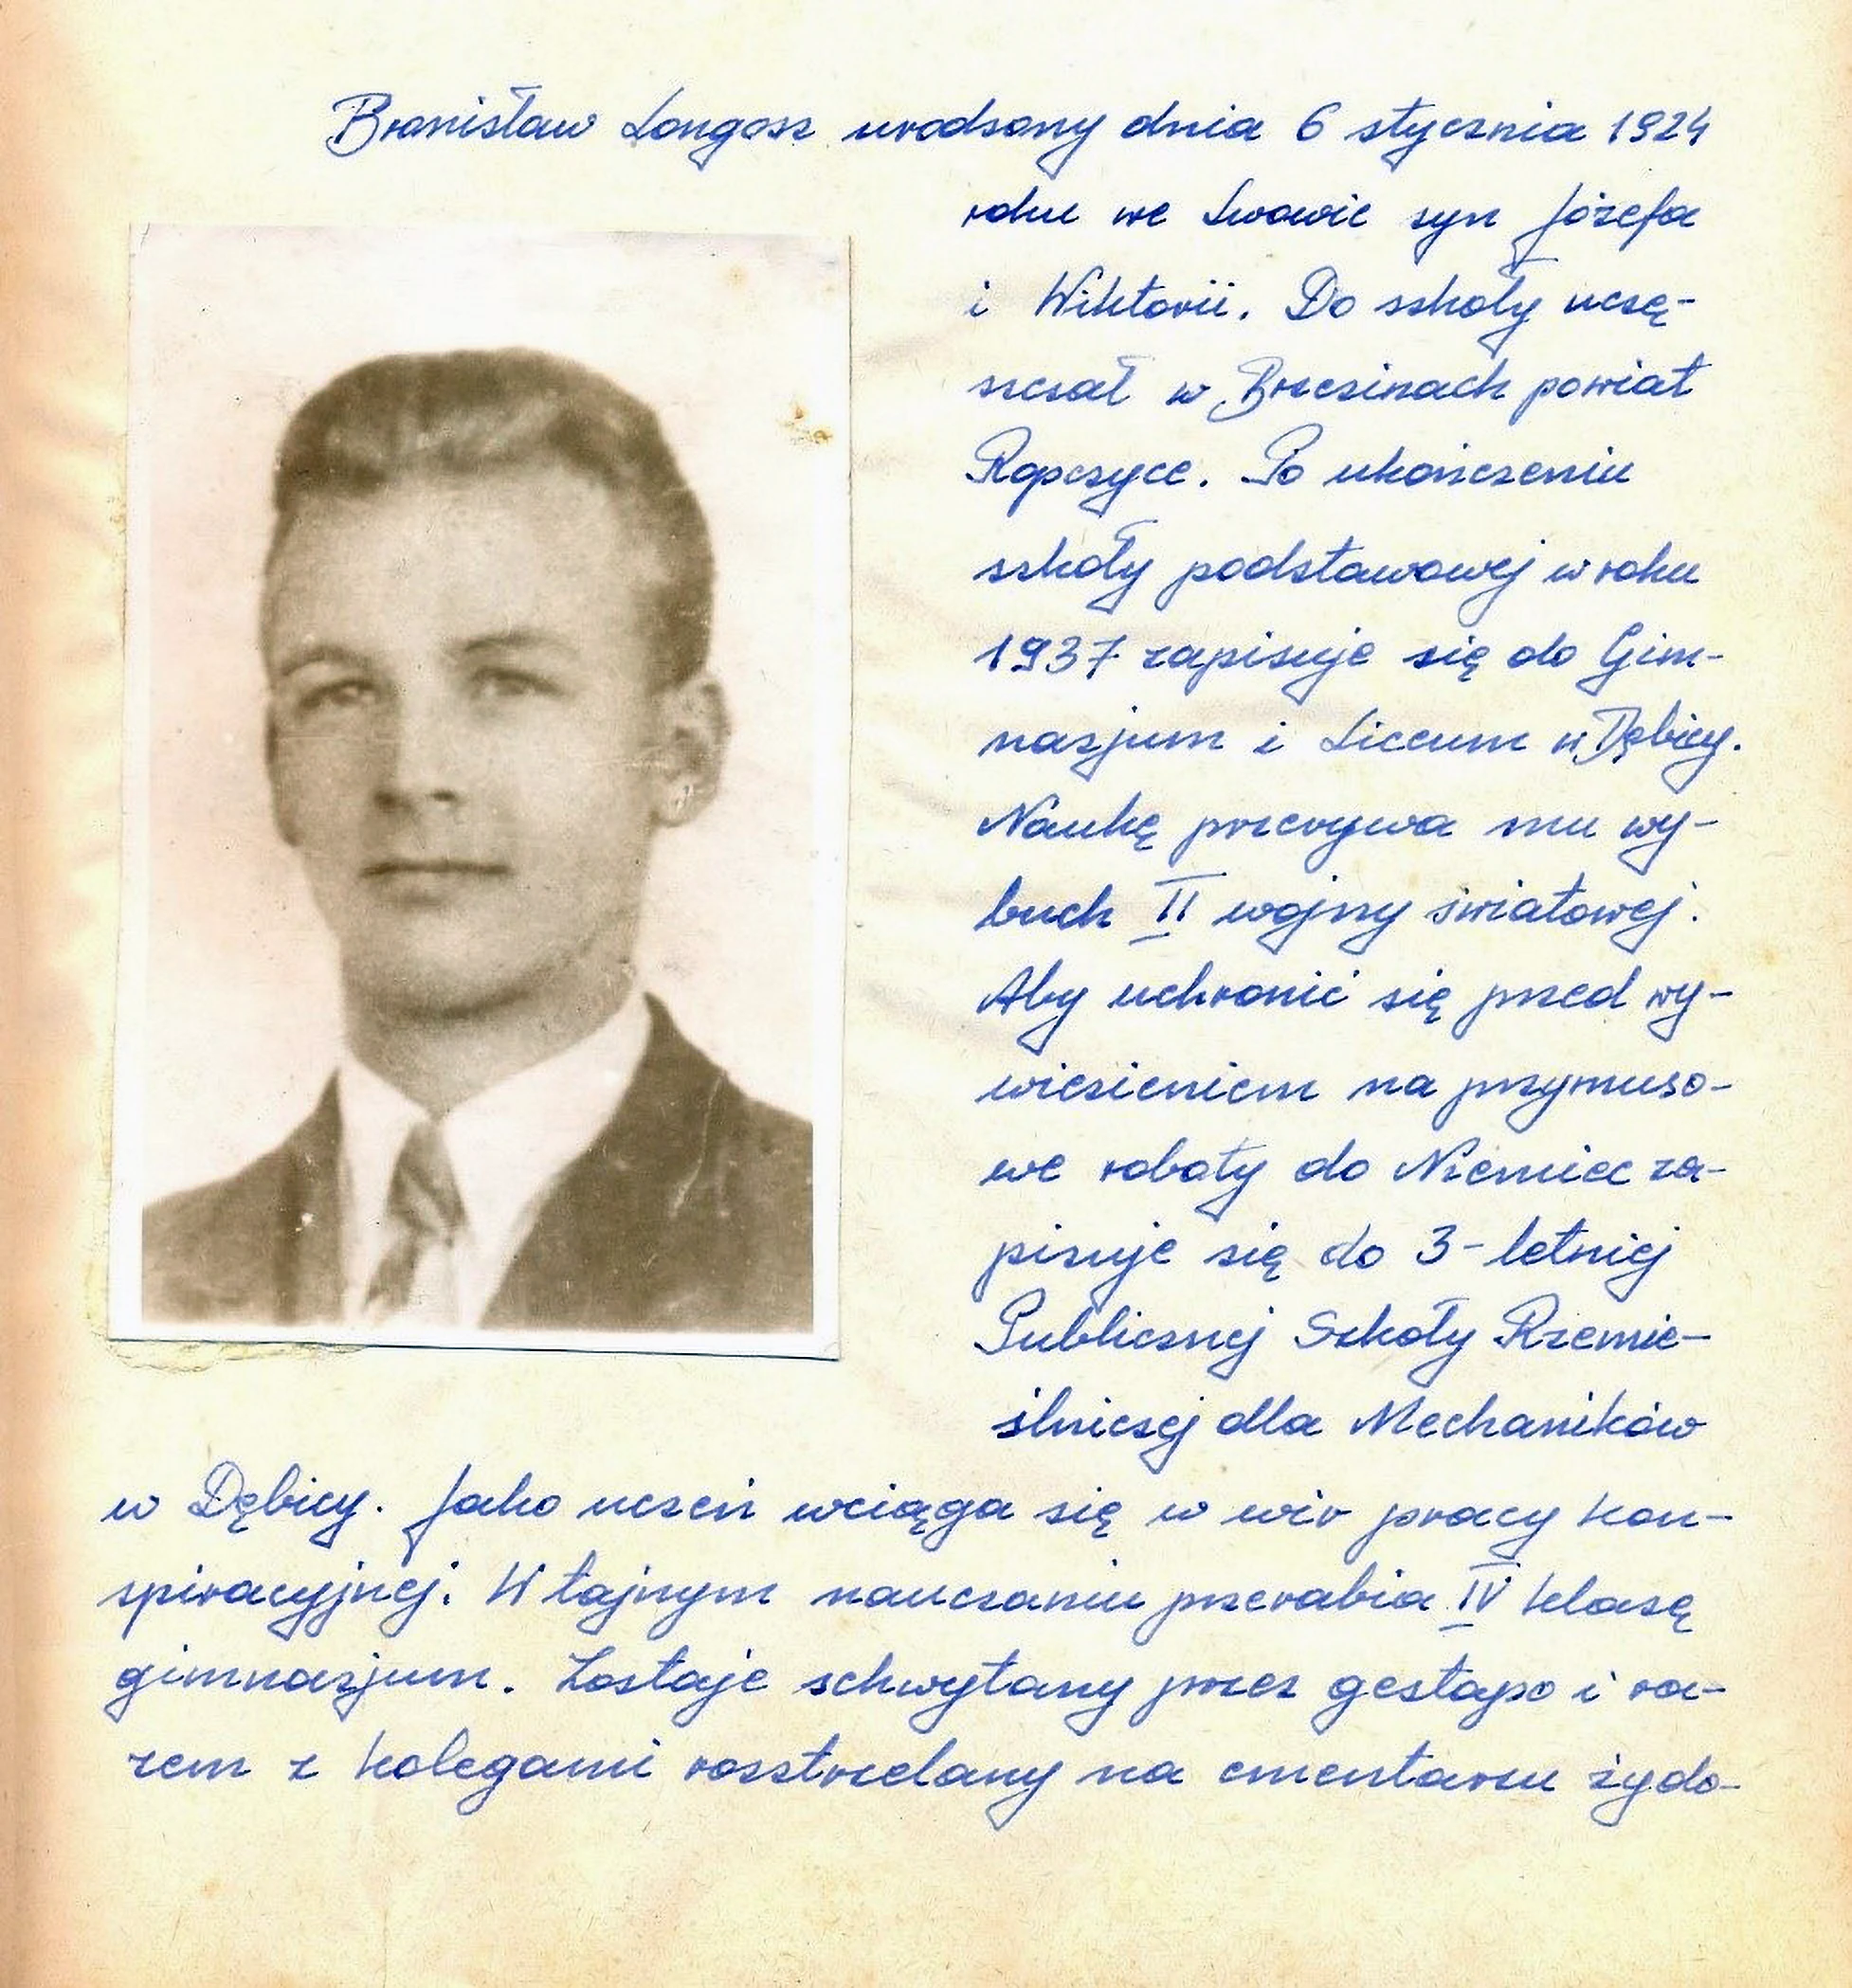 Bronisław Longosz urodzony dnia 6 stycznia 1924
roku we Lwowie syn Józefa
i Wiktorii. Do szkoły uczę-
szczał w Brzezinach powiat
Ropczyce. Po ukończeniu
szkoły podstawowej w roku
1937 zapisuje się do Gim-
nazjum i Liceum w Dębicy.
Naukę przerywa mu wy-
buch II wojny światowej.
Aby uchronić się przed wy-
wiezieniem na przymuso-
we roboty do Niemiec za-
pisuje się do 3-letniej
Publicznej Szkoły Rzemie-
ślniczej dla Mechaników
w Dębicy. Jako uczeń wciąga się w wir pracy kon-
spiracyjnej. W tajnym nauczaniu przerabia IV klasę
gimnazjum. Zostaje schwytany przez gestapo i ra-
zem z kolegami rozstrzelany na cmentarzu żydo-